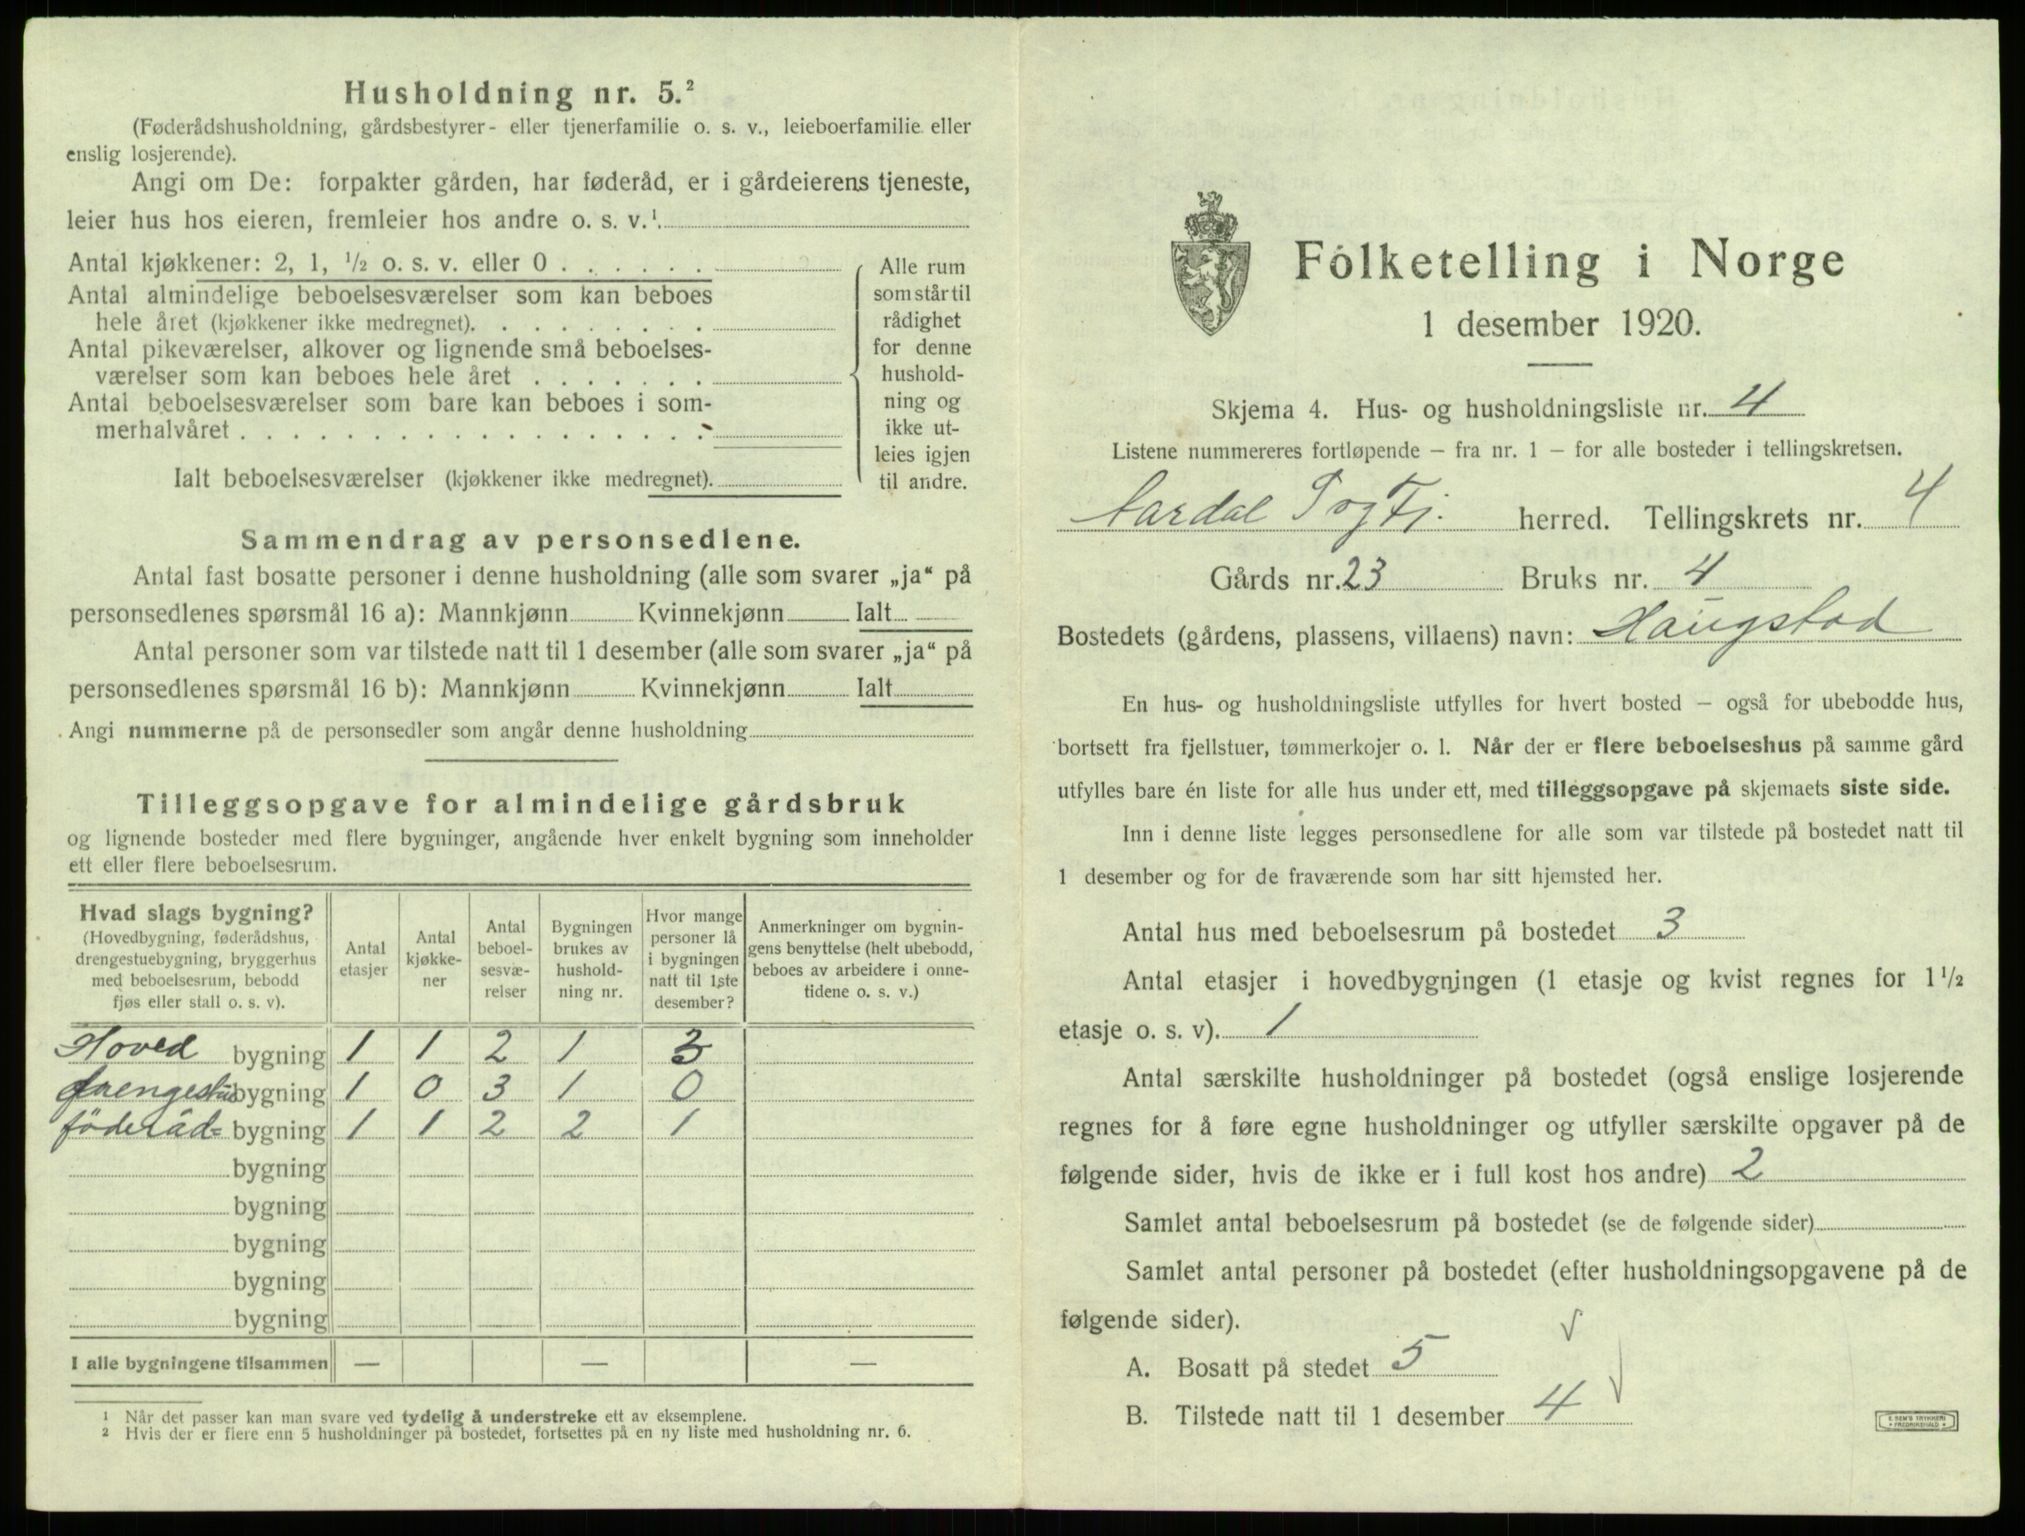 Husholdning nr. 5.²
(Føderådshusholdning, gårdsbestyrer- eller tjenerfamilie o. s. v., leieboerfamilie eller
enslig losjerende).
Angi om De: forpakter gården, har føderåd, er i gårdeierens tjeneste,
leier hus hos eieren, fremleier hos andre o. s. v.¹
Antal kjøkkener: 2, 1, ½ o. s. v. eller 0 . . . . . .
Antal almindelige beboelsesværelser som kan beboes
hele året (kjøkkener ikke medregnet). . . . . . . . .
Antal pikeværelser, alkover og lignende små beboelses-
værelser som kan beboes hele året . . . . . . .
Antal beboelsesværelser som bare kan beboes i som-
merhalvåret . . . . . . . . . . . . . . . . . .
Ialt beboelsesværelser (kjøkkener ikke medregnet).
Alle rum
som står til
rådighet
for denne
hushold-
ning og
ikke ut-
leies igjen
til andre.
Sammendrag av personsedlene.
Antal fast bosatte personer i denne husholdning (alle som svarer „ja“ på
personsedlenes spørsmål 16 a): Mannkjønn Kvinnekjønn Ialt
Antal personer som var tilstede natt til 1 desember (alle som svarer „ja“ på
personsedlenes spørsmål 16 b): Mannkjønn Kvinnekjønn Ialt
Angi nummerne på de personsedler som angår denne husholdning
Tilleggsopgave for almindelige gårdsbruk
og lignende bosteder med flere bygninger, angående hver enkelt bygning som inneholder
ett eller flere beboelsesrum.
Hvad slags bygning?
(Hovedbygning, føderådshus,
drengestuebygning, bryggerhus
med beboelsesrum, bebodd
fjøs eller stall o. s. v).
Antal
etasjer
Antal
kjøkke-
ner
Antal
beboel-
sesvæ-
relser
Bygningen
brukes av
hushold-
ning nr.
Hvor mange
personer lå
i bygningen
natt til 1ste
desember?
Anmerkninger om bygnin-
gens benyttelse (helt ubebodd,
beboes av arbeidere i onne-
tidene o. s. v.)
Hoved bygning 1 1 2 1 3
drengestue bygning 1 0 3 1 0
föderåd= bygning 1 1 2 2 1
bygning
bygning
bygning
bygning
bygning
I alle bygningene tilsammen — — —
¹ Når det passer kan man svare ved tydelig å understreke ett av eksemplene.
² Hvis der er flere enn 5 husholdninger på bostedet, fortsettes på en ny liste med husholdning nr. 6.
Folketelling i Norge
1 desember 1920.
Skjema 4. Hus- og husholdningsliste nr. 4
Listene nummereres fortløpende – fra nr. 1 – for alle bosteder i tellingskretsen.
Aardal Sog Fj. herred. Tellingskrets nr. 4
Gårds nr. 23 Bruks nr. 4
Bostedets (gårdens, plassens, villaens) navn: Haugstad
En hus- og husholdningsliste utfylles for hvert bosted – også for ubebodde hus,
bortsett fra fjellstuer, tømmerkojer o. l. Når der er flere beboelseshus på samme gård
utfylles bare én liste for alle hus under ett, med tilleggsopgave på skjemaets siste side.
Inn i denne liste legges personsedlene for alle som var tilstede på bostedet natt til
1 desember og for de fraværende som har sitt hjemsted her.
Antal hus med beboelsesrum på bostedet 3
Antal etasjer i hovedbygningen (1 etasje og kvist regnes for 1½
etasje o. s. v). 1
Antal særskilte husholdninger på bostedet (også enslige losjerende
regnes for å føre egne husholdninger og utfyller særskilte opgaver på de
følgende sider, hvis de ikke er i full kost hos andre) 2
Samlet antal beboelsesrum på bostedet (se de følgende sider)
Samlet antal personer på bostedet (efter husholdningsopgavene på de
følgende sider).
A. Bosatt på stedet 5
B. Tilstede natt til 1 desember 4
E. SEM'S TRYKKERI
FREDRIKSHALD